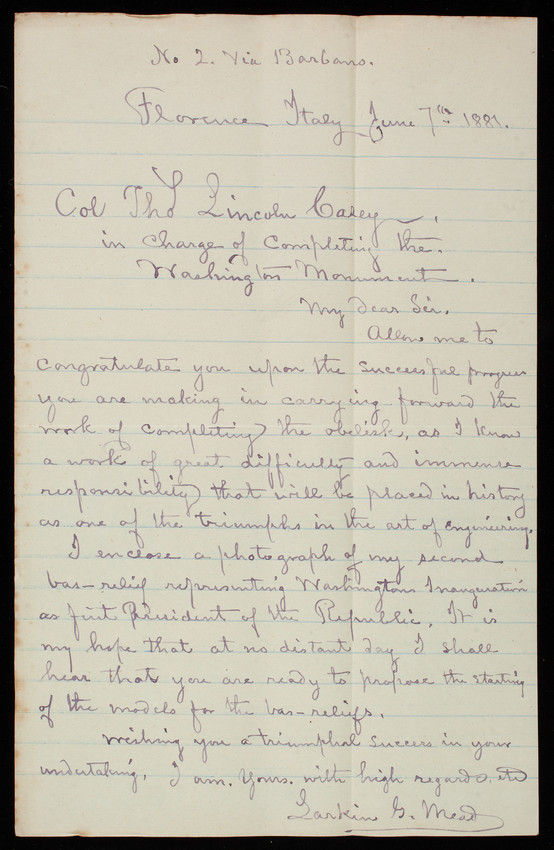 No 2. Via Barbano.
Florence Italy June 7th 1881.
Col Tho Lincoln Casey,
in charge of Completing the
Washington Monument.
My dear Sir.
Allow me to
congratulate you upon the successful progress
you are making in carrying forward the
work of completing the obelisk, as I know
a work of great difficulty and immense
responsibility that will be placed in history
as one of the triumphs in the art of engineering.
I enclose a photograph of my second
bas-relief representing Washingtons Inauguration
as first President of the Republic. It is
my hope that at no distant day I shall
hear that you are ready to propose the starting
of the models for the bas-reliefs.
Wishing you a triumphal success in your
undertaking, I am. Yours. with high regards. etc
Larkin G. Mead